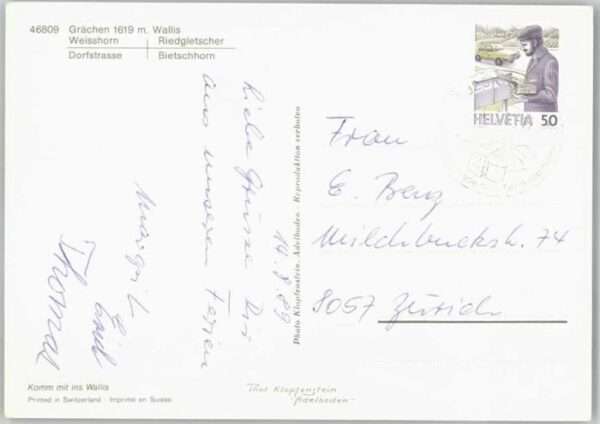 46809 Grächen 1619 m. Wallis
Weisshorn Riedgletscher
Dorfstrasse Bietschhorn
HELVETIA 50
14.8.89
Liebe Grüsse
aus unseren Ferien
Thomas
Photo Klopfenstein, Adelboden - Reproduktion verboten
Frau
E. Berg
Milchbuckstr. 74
8057 Zürich
Komm mit ins Wallis
Printed in Switzerland - Imprimé en Suisse
Thos Klopfenstein
Adelboden